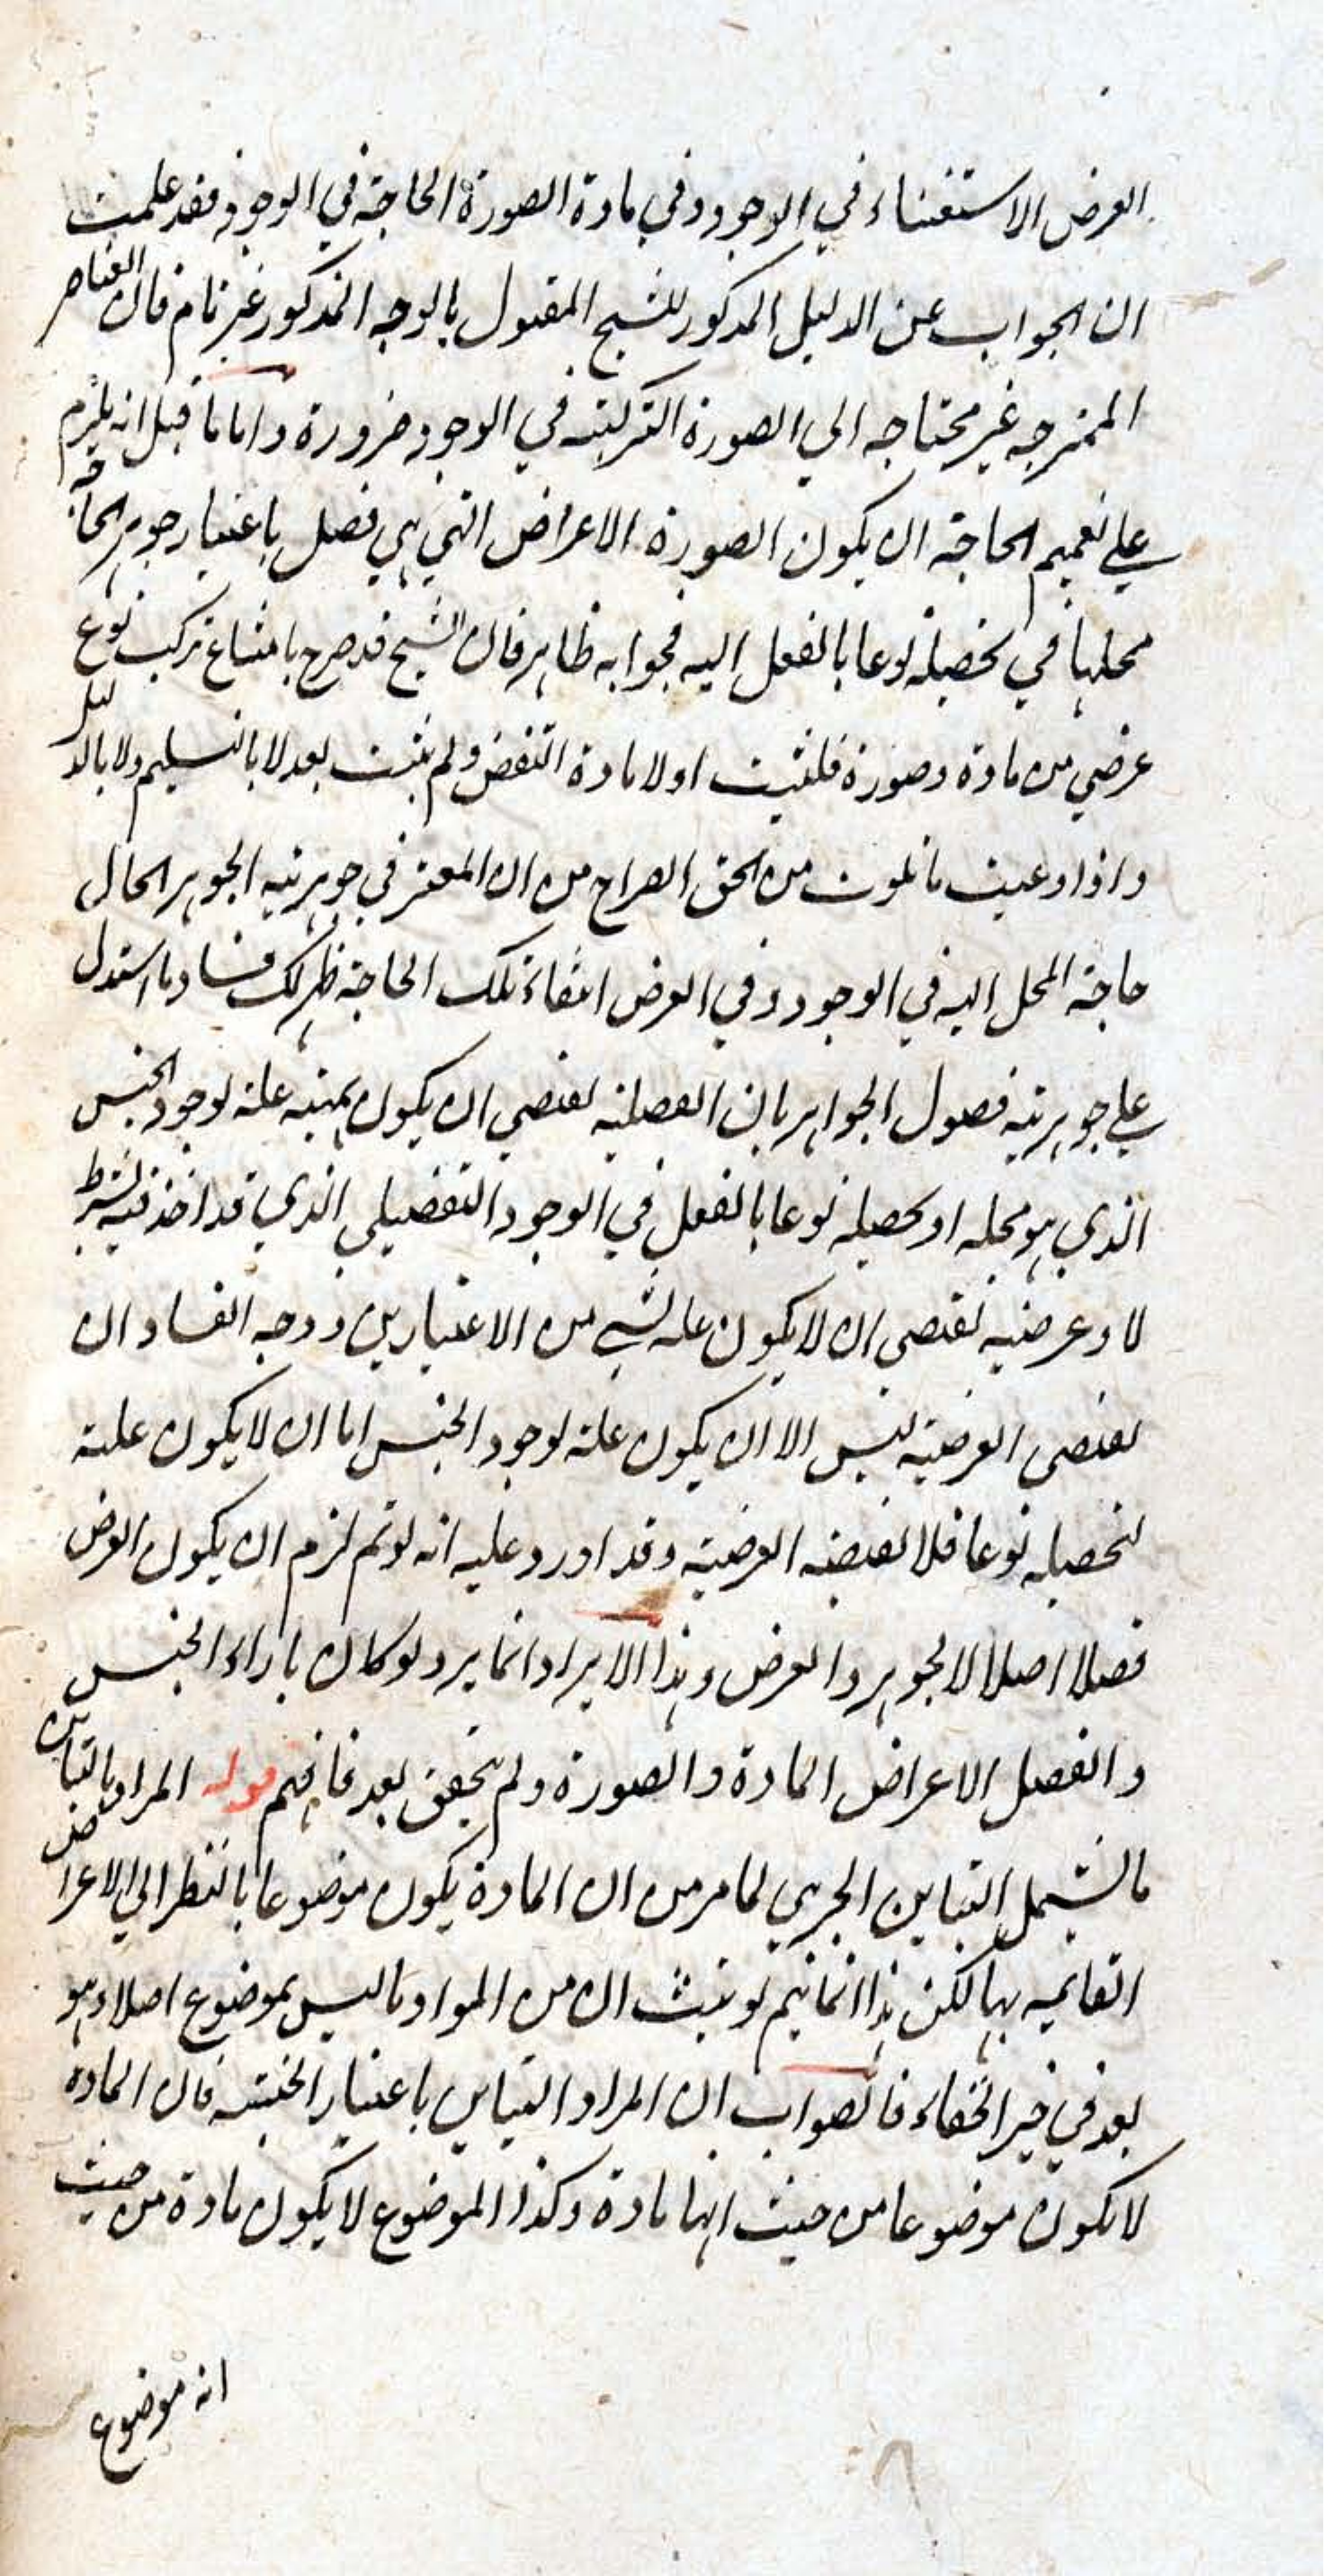 العرض الاستغناء في الوجود وفي مادة الصورة الحاجة في الوجود فقد علمت
ان الجواب عن الدليل المذكور للشيخ المقتول بالوجه المذكور غير تام فان العناصر
الممتزجه غير محتاجه الي الصورة التركيبته في الوجود ضرورة واما ما قيل انه يلزم
علي تعميم الحاجة ان يكون الصورة الاعراض التي هي فصل باعتبار جوهر الحاجة
محلها في تحصيله نوعا بالفعل اليه فجوابه ظاهر فان الشيخ قد صرح بامتناع تركيب نوع
عرضي من مادة وصورة فلنثبت اولا مادة النقض ولم يثبت بعد لا بالتسليم ولا بالدليل
واذا وعيت ما تلوت من الحق الصراح من ان المعتبر في جوهريته الجوهر الحال
حاجة المحل اليه في الوجود وفي العرض انتفاء تلك الحاجة ظهر لك فساد ما استدل
علي جوهريته فصول الجواهر بان الفصلية تقتضي ان يكون مهيته علة لوجود الجنس
الذي هو محله او تحصيله نوعا بالفعل في الوجود التفضيلي الذي قد اخذ فيه بشرط
لا وعرضيه تقتضي ان لا يكون علة لشي من الاعتبارين ووجه الفساد ان
تقتضي العرضية ليس الا ان يكون علة لوجود الجنس اما ان لا يكون علية
لتحصيله نوعا فلا تقتضه العرضية وقد اورد عليه انه لو تم لزم ان يكون العرض
فصلا اصلا لا لجوهر والعرض وهذا الايراد انما يرد لو كان بازاء الجنس
والفصل الاعراض المادة والصورة ولم يتحقق بعد فافهم قوله المراد بالتباين
ما يشمل التباين الجزيي لما مر من ان المادة يكون موضوعا بالنظر الي الاعراض
القايمه بها لكن هذا انما يتم لو يثبت ان من المواد ما ليس بموضوع اصلا وهو
بعد في خير الخفاء فالصواب ان المراد التباين باعتبار الحيثيته فان المادة
لا يكون موضوعا من حيث انها مادة وكذا الموضوع لا يكون مادة من حيث
انه موضوع